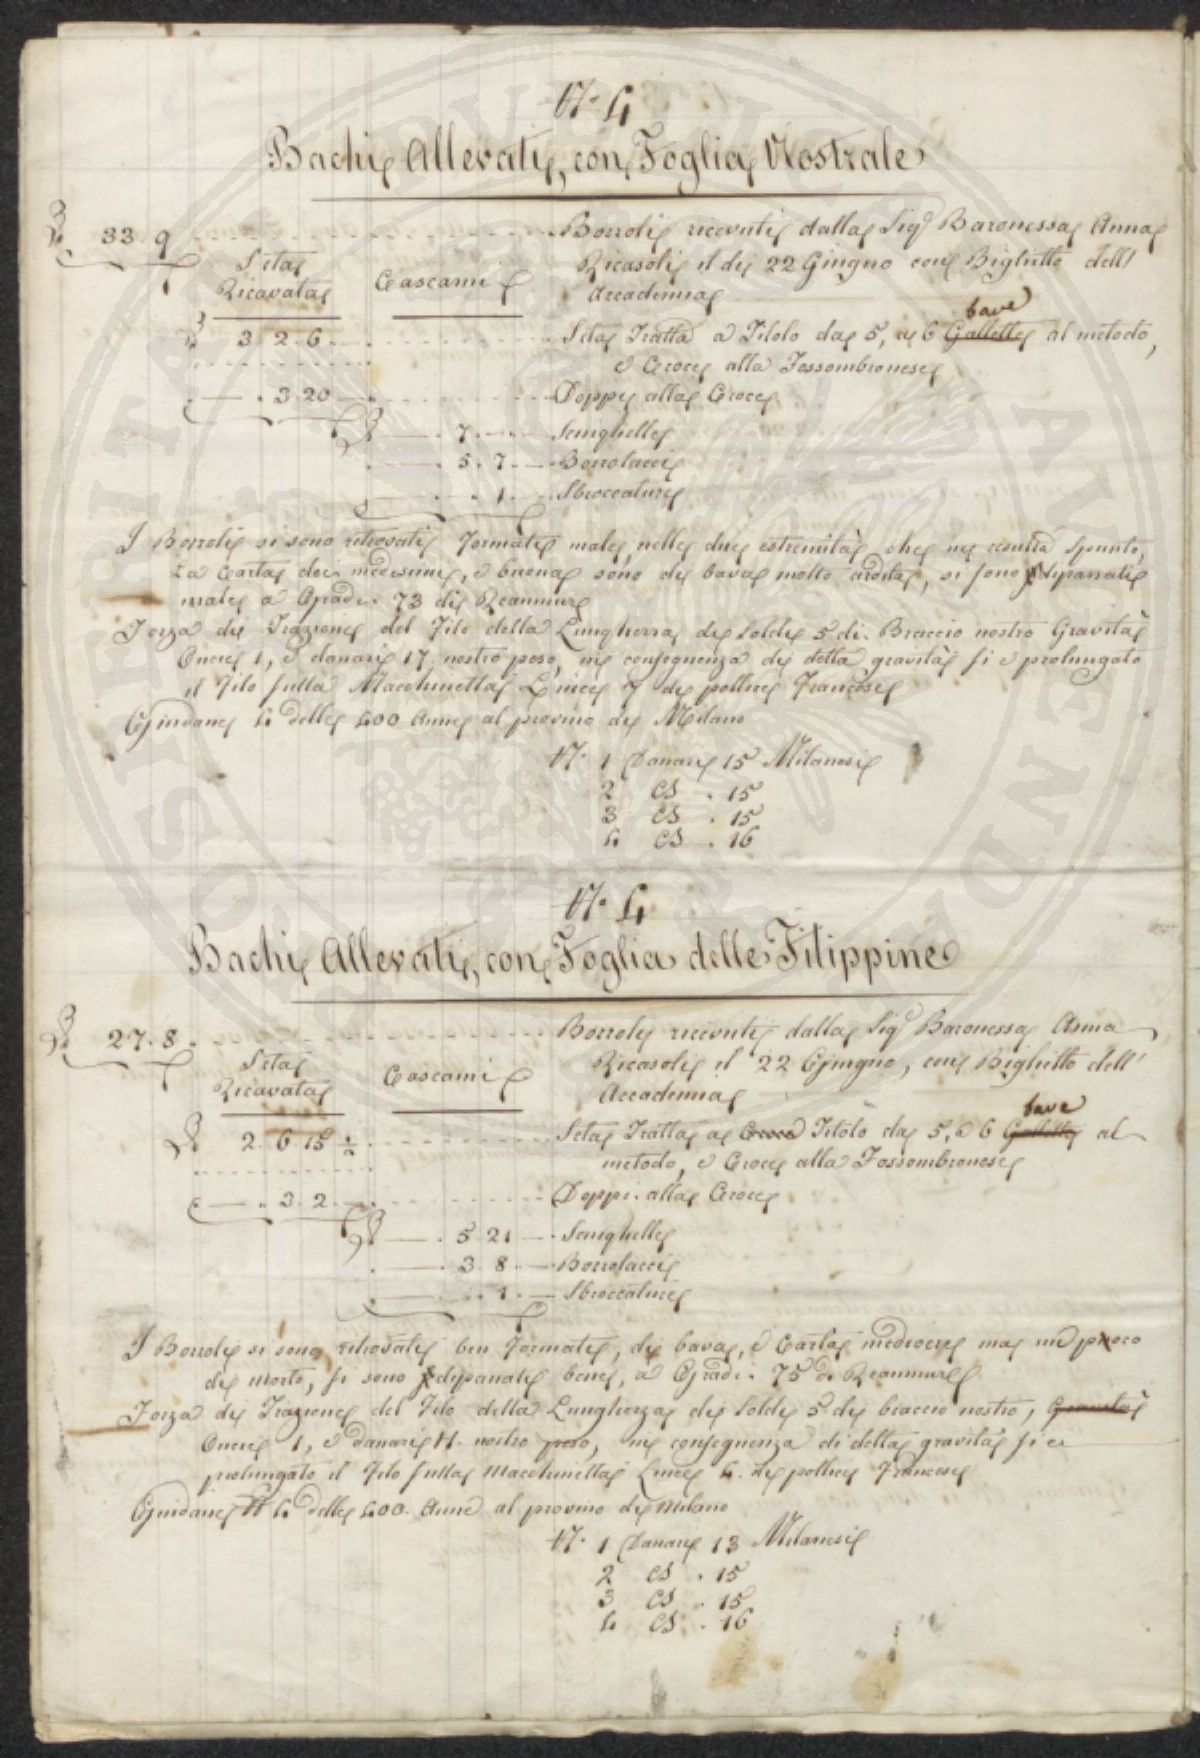 N.º 4
Bachi Allevati, con Foglia Nostrale
33. 9 Bozzoli ricevuti dalla Sigª Baronessa Anna
Seta Ricavata
Cascami
Ricasoli il di 22 Giugno con Biglietto dell'
Accademia
bave
3. 2. 6 Seta Tratta a Titolo da 5, a 6 Gallette al metodo,
e Croce alla Fossombronese
3. 20 Doppi alla Croce
7 Seinghelle
5. 7 Bozzolacci
1 Sbroccature
I Bozzoli si sono ritrovati formati male nelle due estremità che ne resulta spunto,
La Carta dei medesimi, e buona sono di bava molto ardita, si sono dipanati
male a Gradi. 73 di Reaumure
Forza di Trazione del Filo della Lungherza di soldi 5 di. Braccio nostro Gravità
Oncie 1, e danari 17. nostro peso, in conseguenza di detta gravità si è prolungato
il Filo sulla Macchinetta Linee 7 di pollice Francese
Gindane 4 delle 400 Anne al provino di Milano
N.º 1 Danari 15 Milanesi
2 Cd . 15
3 Cd . 15
4 Cd . 16
N.º 4
Bachi Allevati, con Foglia delle Filippine
27. 8. Bozzoli ricevuti dalla Sigª Baronessa Anna
Seta Ricavata
Cascami
Ricasoli il 22 Giugno, con Biglietto dell'
Accademia
bave
2. 6 15 ½ Seta Tratta a Croce Titolo da 5, a 6 Gallette al
metodo, e Croce alla Fossombronese
3. 2. Doppi. alla Croce
5 21 Seinghelle
3. 8. Bozzolacci
1. Sbroccature
I Bozzoli si sono ritrovati ben formati, di bava, e Carta mediocre ma un pocco
di morto, si sono dipanati bene, a Gradi. 75 di Reaumure
Forza di Trazione del Filo della Lungherza di soldi 5 di braccio nostro, Gravità
Oncie 1, e danari 11. nostro peso, in conseguenza di detta gravità si è
prolungato il Filo sulla Macchinetta Linee 4. di pollice Francese
Gindane 4 delle 400. Anne al provino di Milano
N.º 1 Danari 13 Milanesi
2 Cd . 15
3 Cd . 15
4 Cd . 16